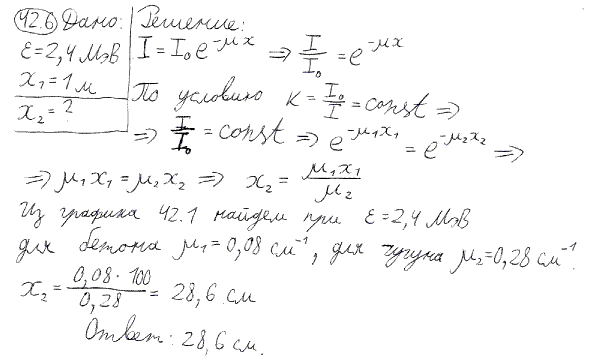 42.6 Дано: Решение:
ε=2,4 МэВ I = I₀e^(-μx) ⇒ I/I₀ = e^(-μx)
x₁=1 м
x₂=? По условию K = I₀/I = const ⇒
⇒ I/I₀ = const ⇒ e^(-μ₁x₁) = e^(-μ₂x₂) ⇒
⇒ μ₁x₁ = μ₂x₂ ⇒ x₂ = μ₁x₁/μ₂
Из графика 42.1 найдем при ε=2,4 МэВ
для бетона μ₁=0,08 см⁻¹, для чугуна μ₂=0,28 см⁻¹.
x₂ = 0,08·100/0,28 = 28,6 см
Ответ: 28,6 см.